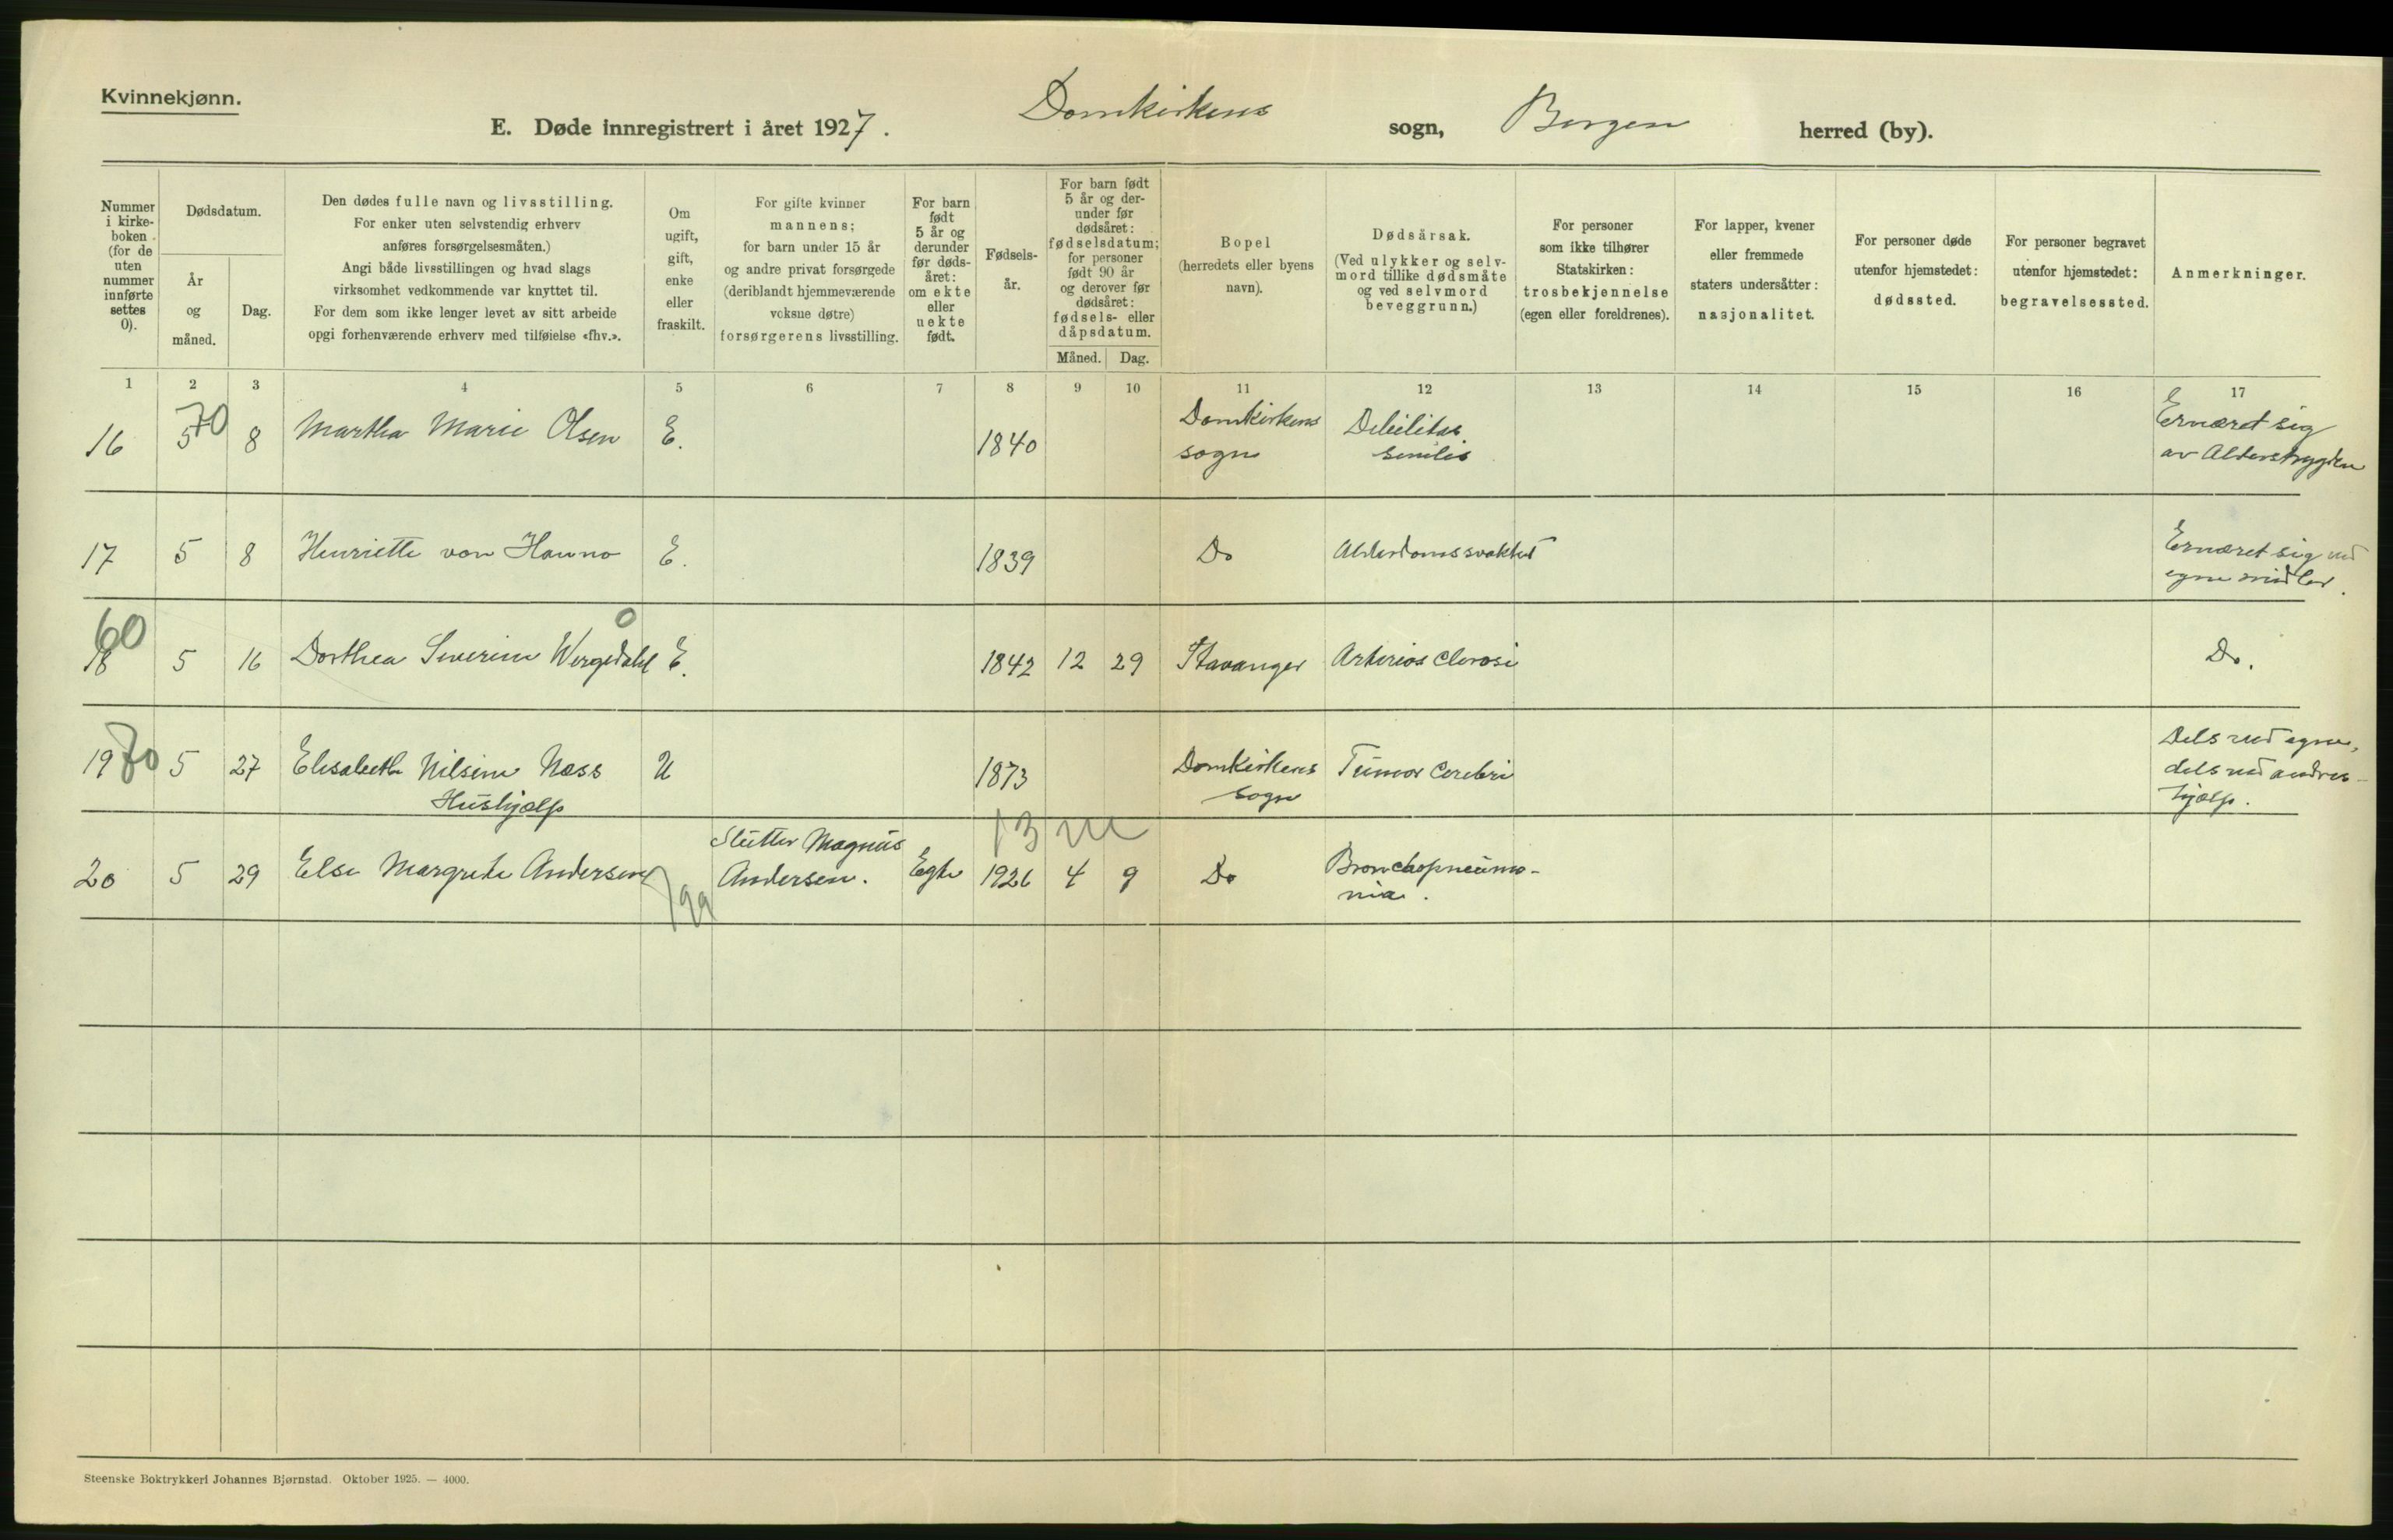 Kvinnekjønn.
E. Døde innregistrert i året 1927.
Domkirkens sogn, Bergen herred (by).
Nummer i kirke-boken (for de uten nummer innførte settes 0).
Dødsdatum.
År og måned.
Dag.
Den dødes fulle navn og livsstilling.
For enker uten selvstendig erhverv
anføres forsørgelsesmåten.)
Angi både livsstillingen og hvad slags
virksomhet vedkommende var knyttet til.
For dem som ikke lenger levet av sitt arbeide
opgi forhenværende erhverv med tilføielse «fhv.».
Om ugift, gift, enke eller fraskilt.
For gifte kvinner
mannens;
for barn under 15 år
og andre privat forsørgede
(deriblandt hjemmeværende
voksne døtre)
forsørgerens livsstilling.
For barn født 5 år og derunder før døds-året: om ekte eller uekte født.
Fødsels-år.
For barn født
5 år og der-
under før
dødsåret:
fødselsdatum;
for personer
født 90 år
og derover før
dødsåret:
fødsels- eller
dåpsdatum.
Måned. Dag.
Bopel
(herredets eller byens
navn).
Dødsårsak.
(Ved ulykker og selv-
mord tillike dødsmåte
og ved selvmord
beveggrunn.)
For personer
som ikke tilhører
Statskirken:
trosbekjennelse
(egen eller foreldrenes).
For lapper, kvener
eller fremmede
staters undersåtter:
nasjonalitet.
For personer døde
utenfor hjemstedet:
dødssted.
For personer begravet
utenfor hjemstedet:
begravelsessted.
Anmerkninger.
1 2 3 4 5 6 7 8 9 10 11 12 13 14 15 16 17
70
16 5 8 Martha Marie Olsen E. 1840 Domkirkens sogn Debilitas senilis Ernæret sig av Alderstrygden
17 5 8 Henriette von Hanno E. 1839 Do Alderdomssvakhet Ernæret sig ved egne midler.
60 0
18 5 16 Dorthea Severine Wergedahl E. 1842 12 29 Stavanger Arteriosclerosi Do.
70
19 5 27 Elisabeth Nilsine Næss U 1873 Domkirkens sogn Tumor Cerebri Dels ved egen, dels ved andres hjælp.
Hushjælp
13 m
20 5 29 Else Margrete Andersen Slutter Magnus Andersen. Egte 1926 4 9 Do Bronchopneumo-nia.
199
Steenske Boktrykkeri Johannes Bjørnstad. Oktober 1925. — 4000.